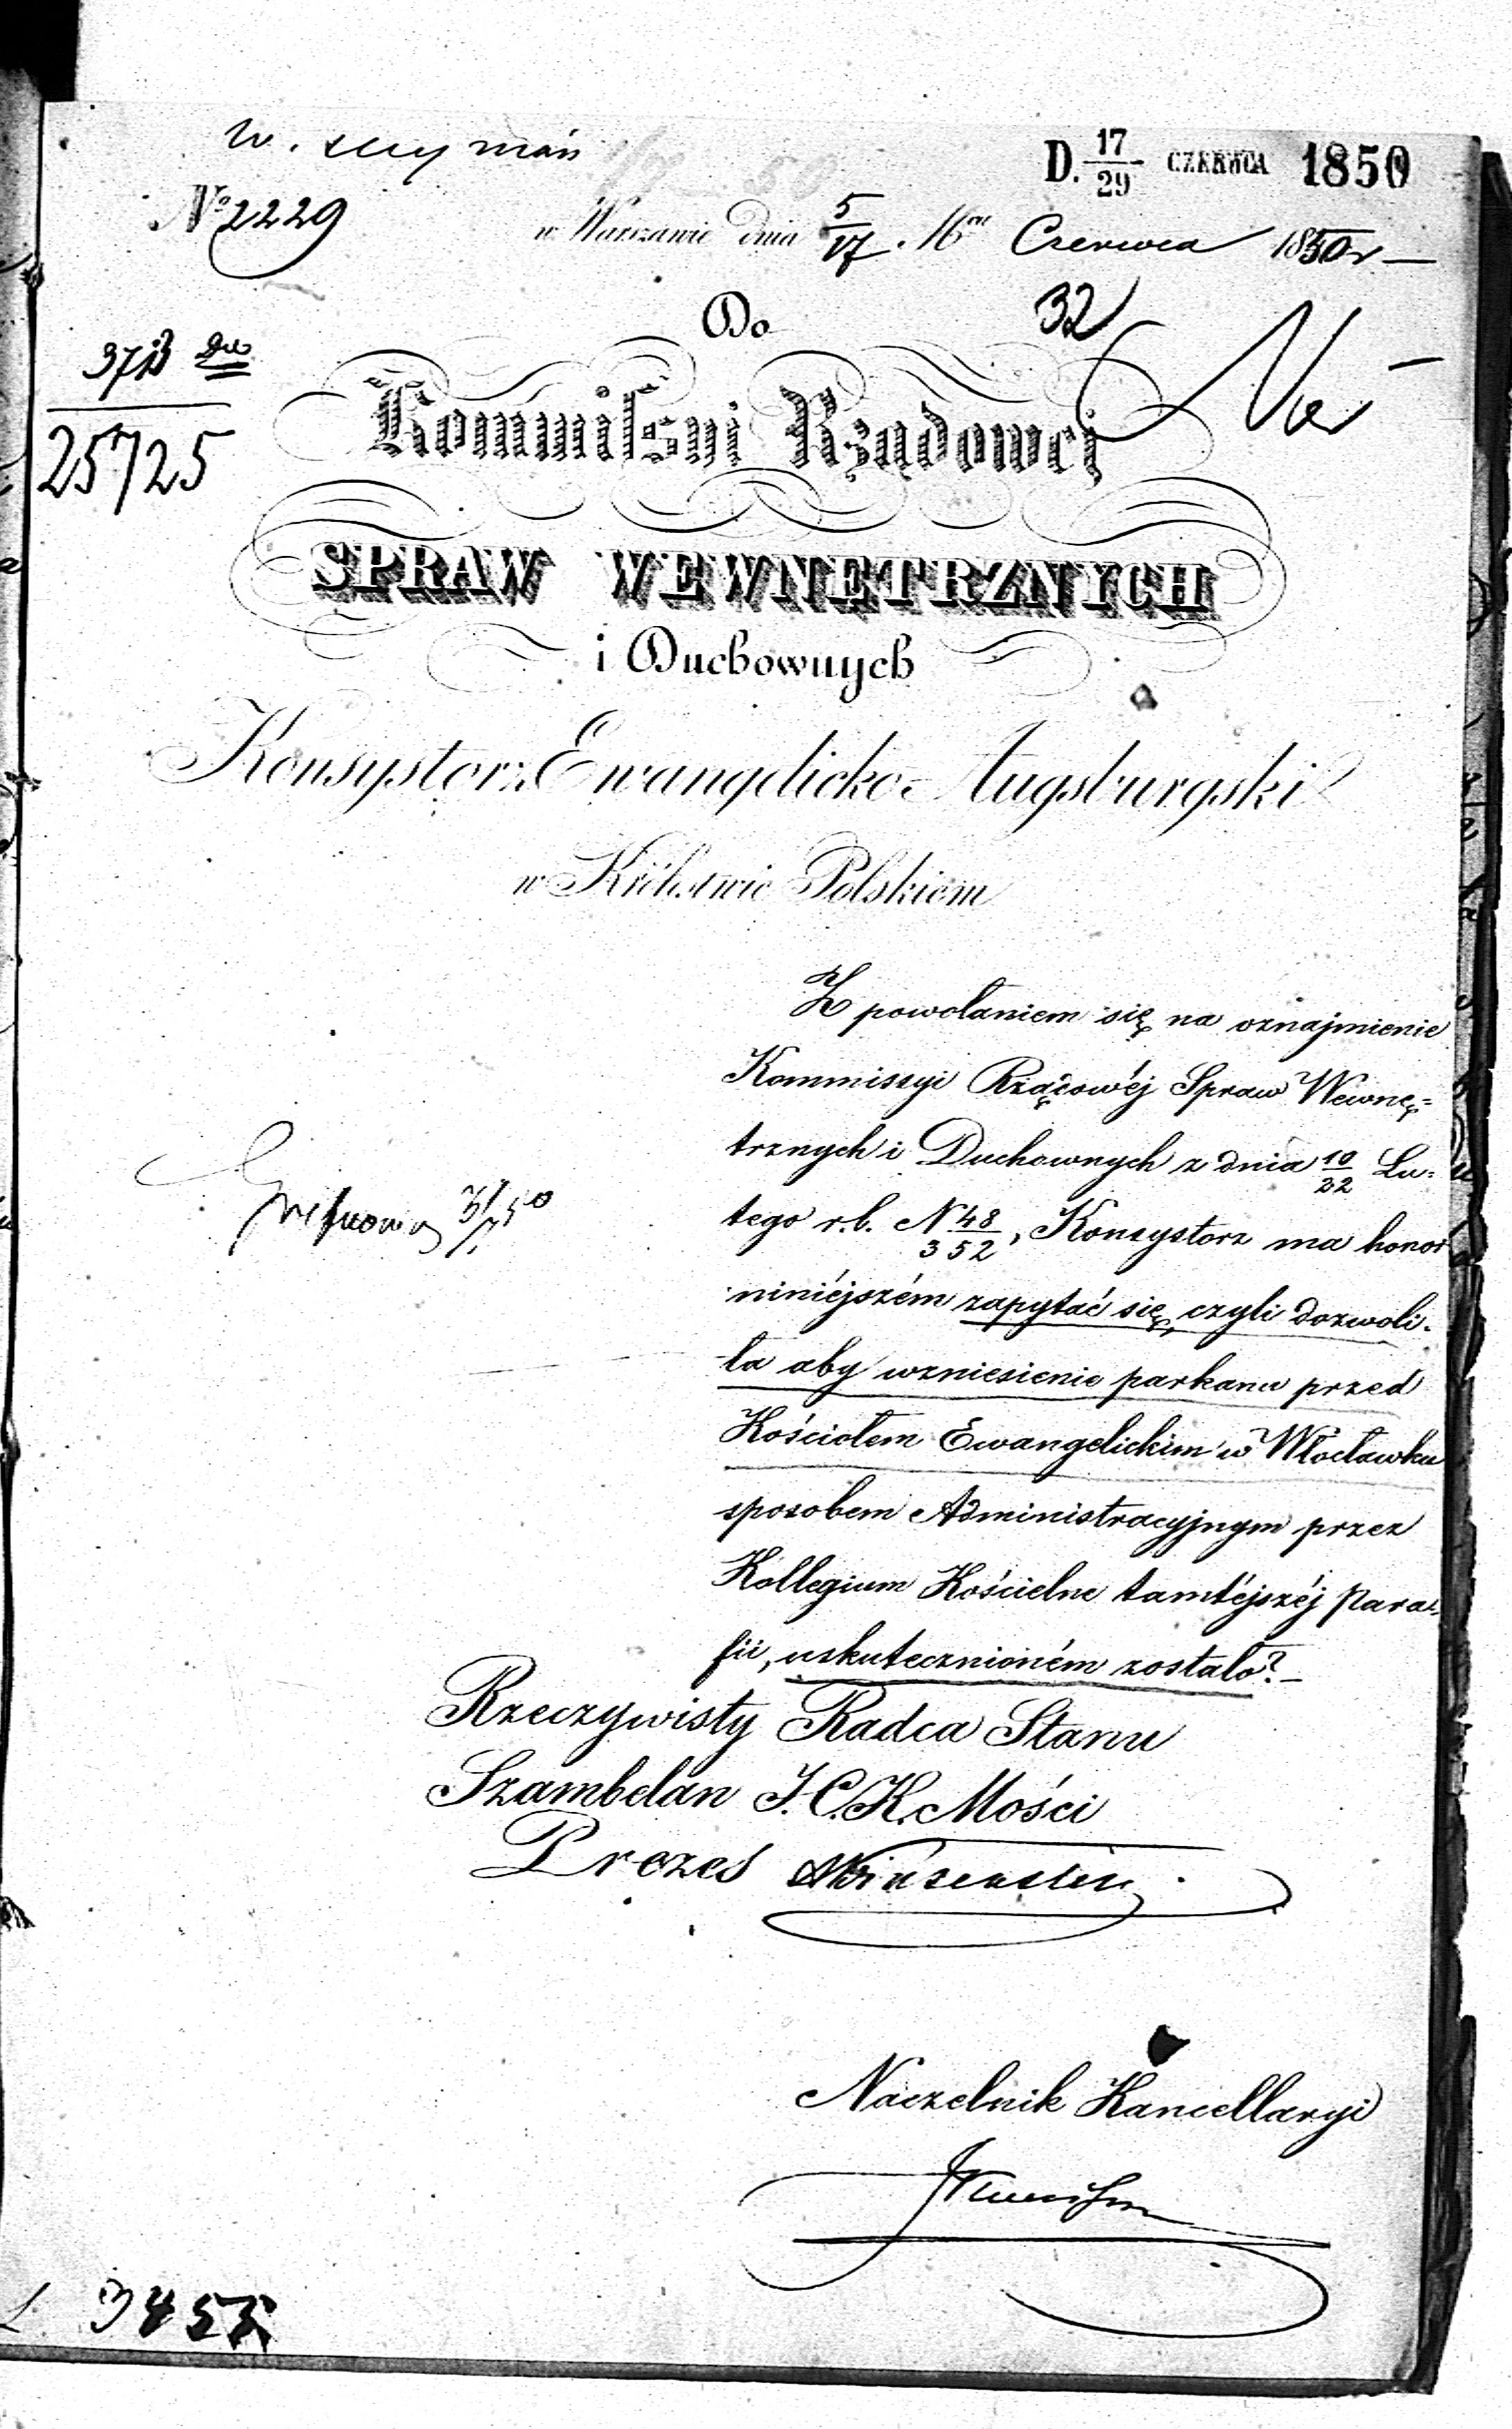 D. 17/29 CZERWCA 1850
№ 2229
w Warszawie dnia 5/17 Mca Czerwca 1850 r
32
Do
25725
Kommissyi Rządowej
SPRAW WEWNĘTRZNYCH
i Duchownych
Konsystorz Ewangelicko-Augsburgski
w Królestwie Polskiem
Z powołaniem się na oznajmienie
Kommissyi Rządowéj Spraw Wewnę=
trznych i Duchownych z dnia 10/22 Lu=
tego r.b. N 48/352, Konsystorz ma honor
niniéjszém zapytać się, czyli dozwoli=
ła aby wzniesienie parkanu przed
Kościołem Ewangelickim w Włocławku
sposobem Administracyjnym przez
Kollegium Kościelne tamtéjszéj Para=
fii, uskutecznioném zostało?
Rzeczywisty Radca Stanu
Szambelan J.C.K. Mości
Prezes
Naczelnik Kancellaryi